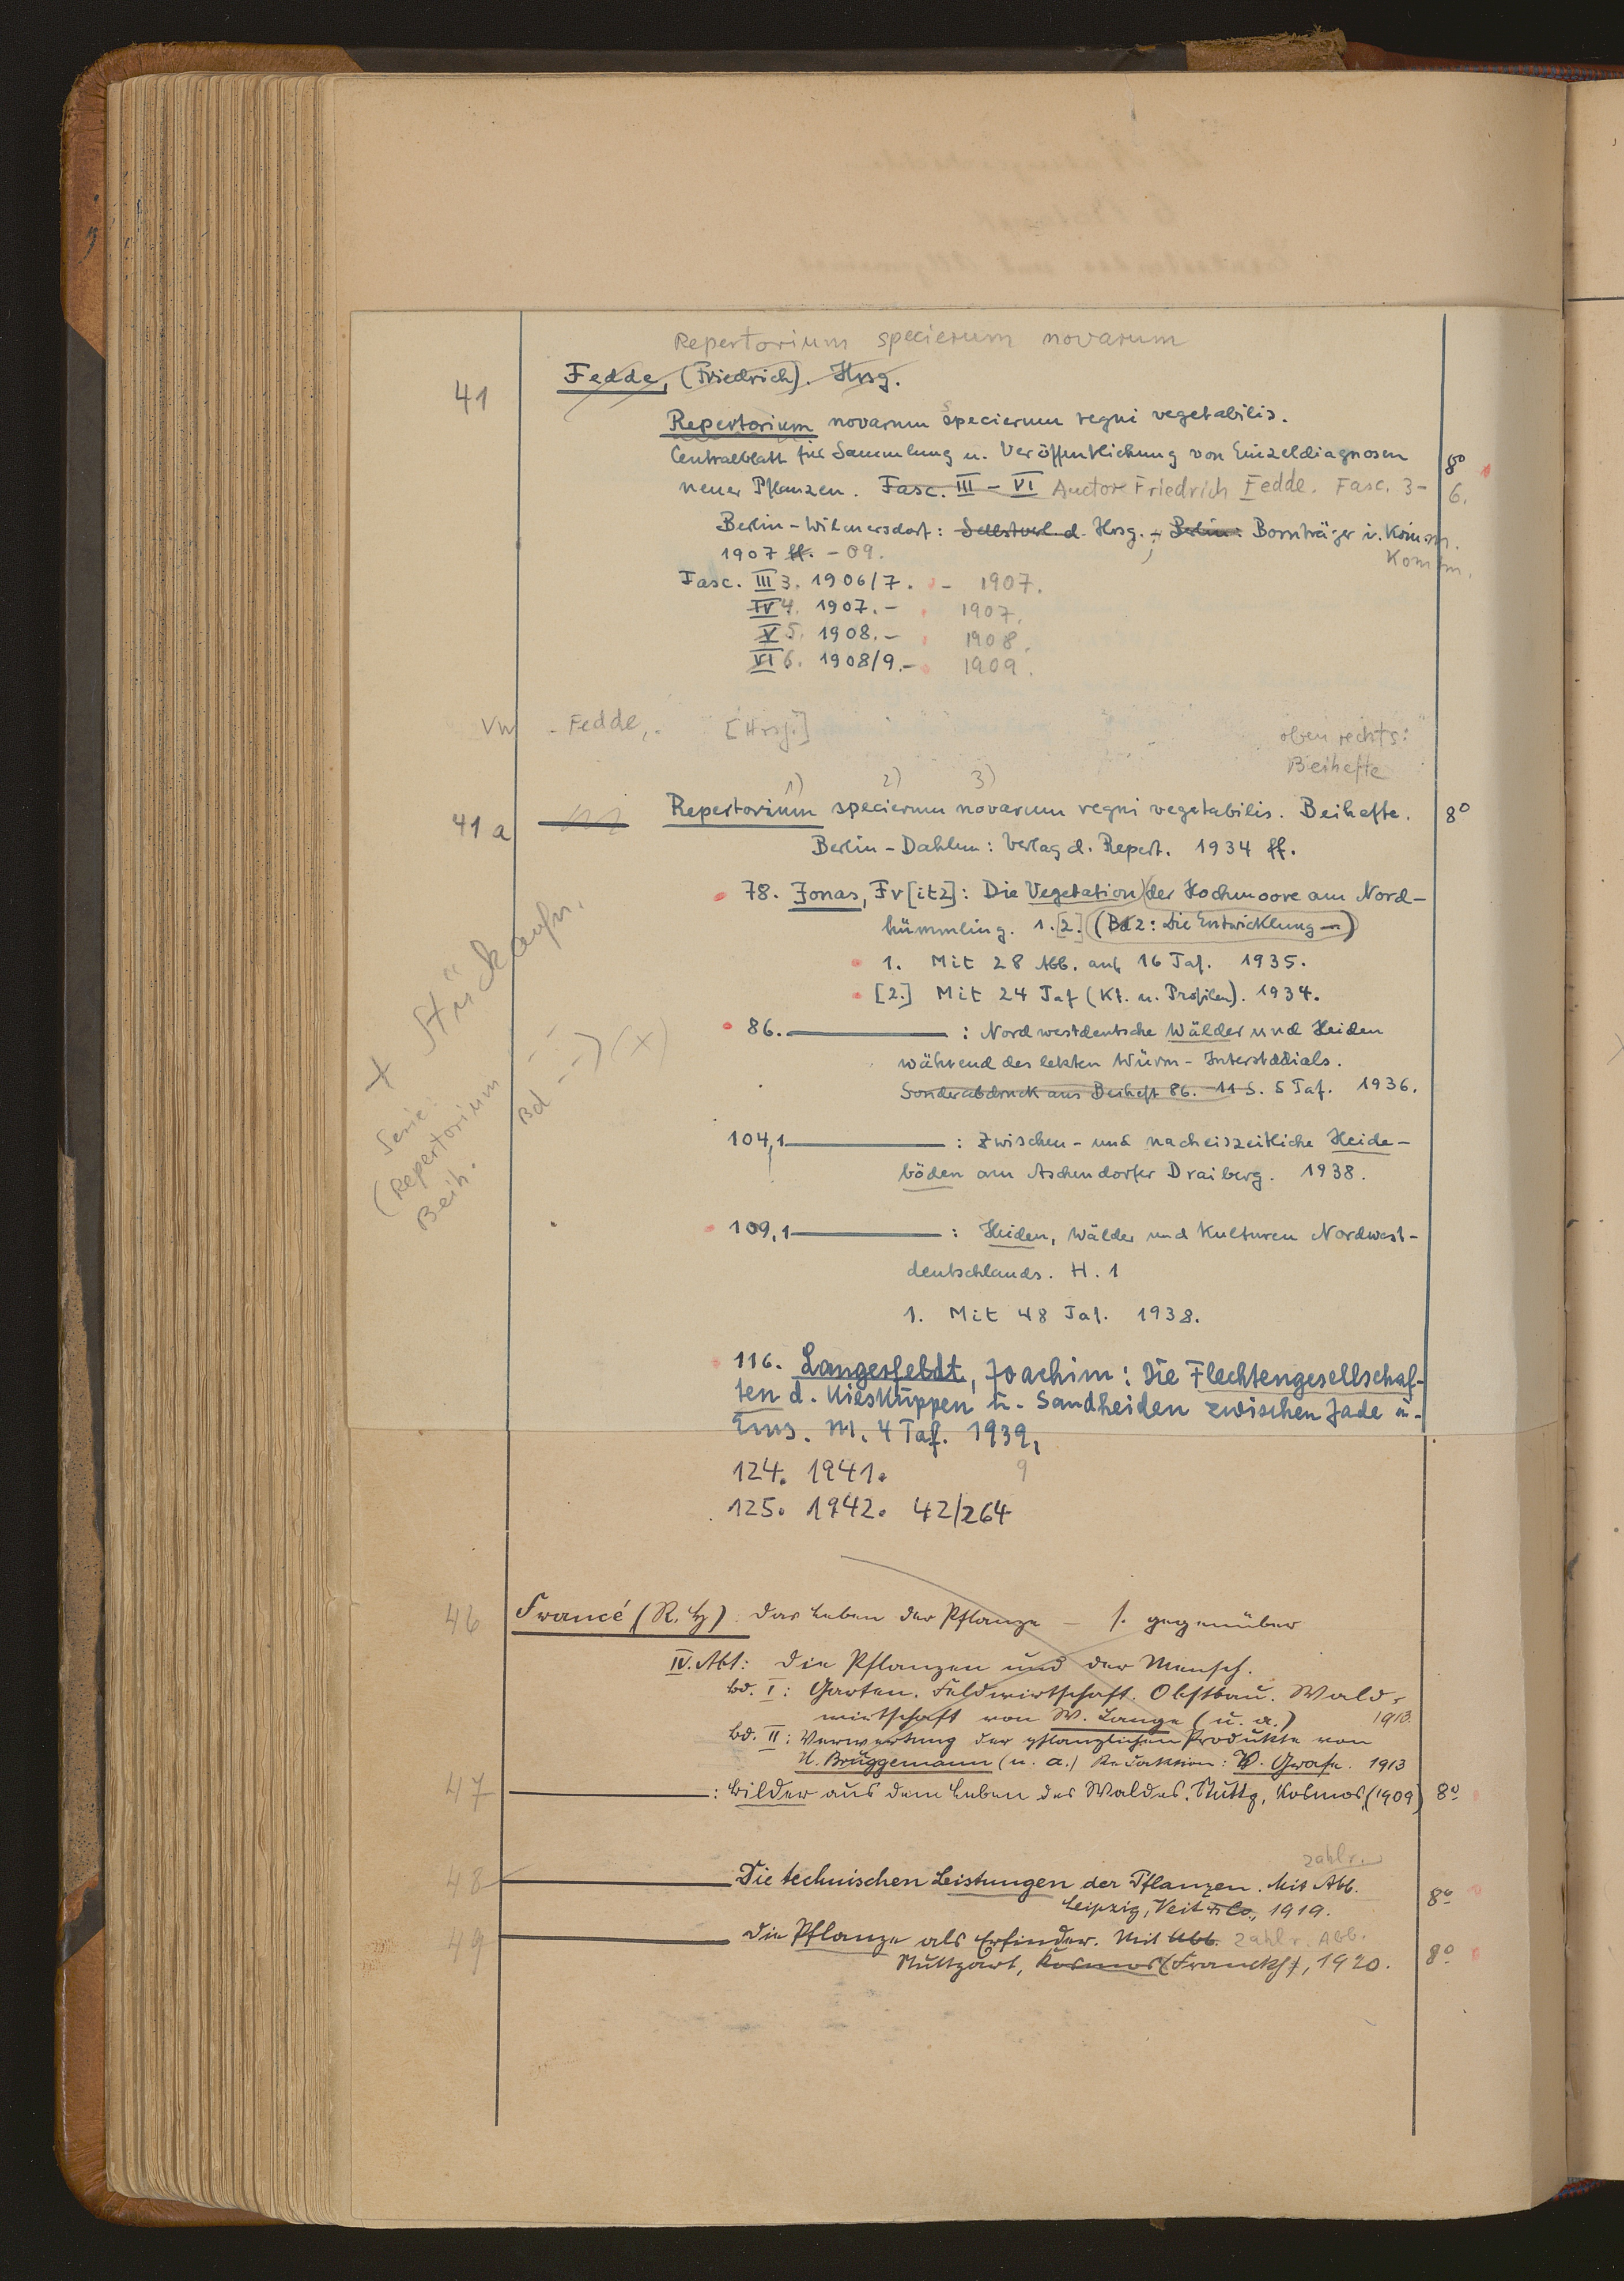 Repertorium specierum novarum
41 Fedde, (Friedrich). Hrsg.
Repertorium novarum specierum regni vegetabilis.
Centralblatt für Sammlung u. Veröffentlichung von Einzeldiagnosen 8°
neuer Pflanzen. Fasc. III – VI Auctor Friedrich Fedde. Fasc. 3–6.
Berlin-Wilmersdorf: Selbstverl. d. Hrsg.; Berlin: Bornträger i. Komm.
1907 ff. – 09. Komm.
Fasc. III 3. 1906/7. – 1907.
IV 4. 1907. – 1907.
V 5. 1908. – 1908.
VI 6. 1908/9. – 1909.
Vw Fedde, [Hrsg.] oben rechts:
Beihefte
1) 2) 3)
41 a Repertorium specierum novarum regni vegetabilis. Beihefte. 8°
Berlin-Dahlem: Verlag d. Repert. 1934 ff.
78. Jonas, Fr[itz]: Die Vegetation der Hochmoore am Nord-
hümmling. 1. [2.] (Bd 2: Die Entwicklung —)
1. Mit 28 Abb. auf 16 Taf. 1935.
[2.] Mit 24 Taf (Kt. u. Profilen). 1934.
86. — : Nordwestdeutsche Wälder und Heiden
während des letzten Würm-Interstadials.
Sonderabdruck aus Beiheft 86. 11 S. 5 Taf. 1936.
+ Stückaufn.
Serie:
(Repertorium
Beih.
Bd --) (x)
104,1 — : Zwischen- und nacheiszeitliche Heide-
böden am Aschendorfer Draiberg. 1938.
109,1 — : Heiden, Wälder und Kulturen Nordwest-
deutschlands. H. 1
1. Mit 48 Taf. 1938.
116. Langerfeldt, Joachim: Die Flechtengesellschaf-
ten d. Kieskuppen u. Sandheiden zwischen Jade u.
Ems. M. 4 Taf. 1939.
9
124. 1941.
125. 1942. 42/264
46 Francé (R. H) Das Leben der Pflanze – s. gegenüber
IV. Abt: Die Pflanzen und der Mensch.
Bd. I: Garten. Feldwirtschaft. Obstbau. Wald-
wirtschaft von W. Lange (u. a.) 1913.
Bd. II: Verwertung der pflanzlichen Produkte von
H. Brüggemann (u. a.) Redaktion: V. Grafe. 1913
47 — : Bilder aus dem Leben des Waldes. Stuttg, Kosmos, (1909) 8°
zahlr.
48 — Die technischen Leistungen der Pflanzen. Mit Abb.
Leipzig, Veit & Co, 1919. 8°
49 — Die Pflanze als Erfinder. Mit Abb. zahlr. Abb.
Stuttgart, Kosmos (Franckh), 1920. 8°